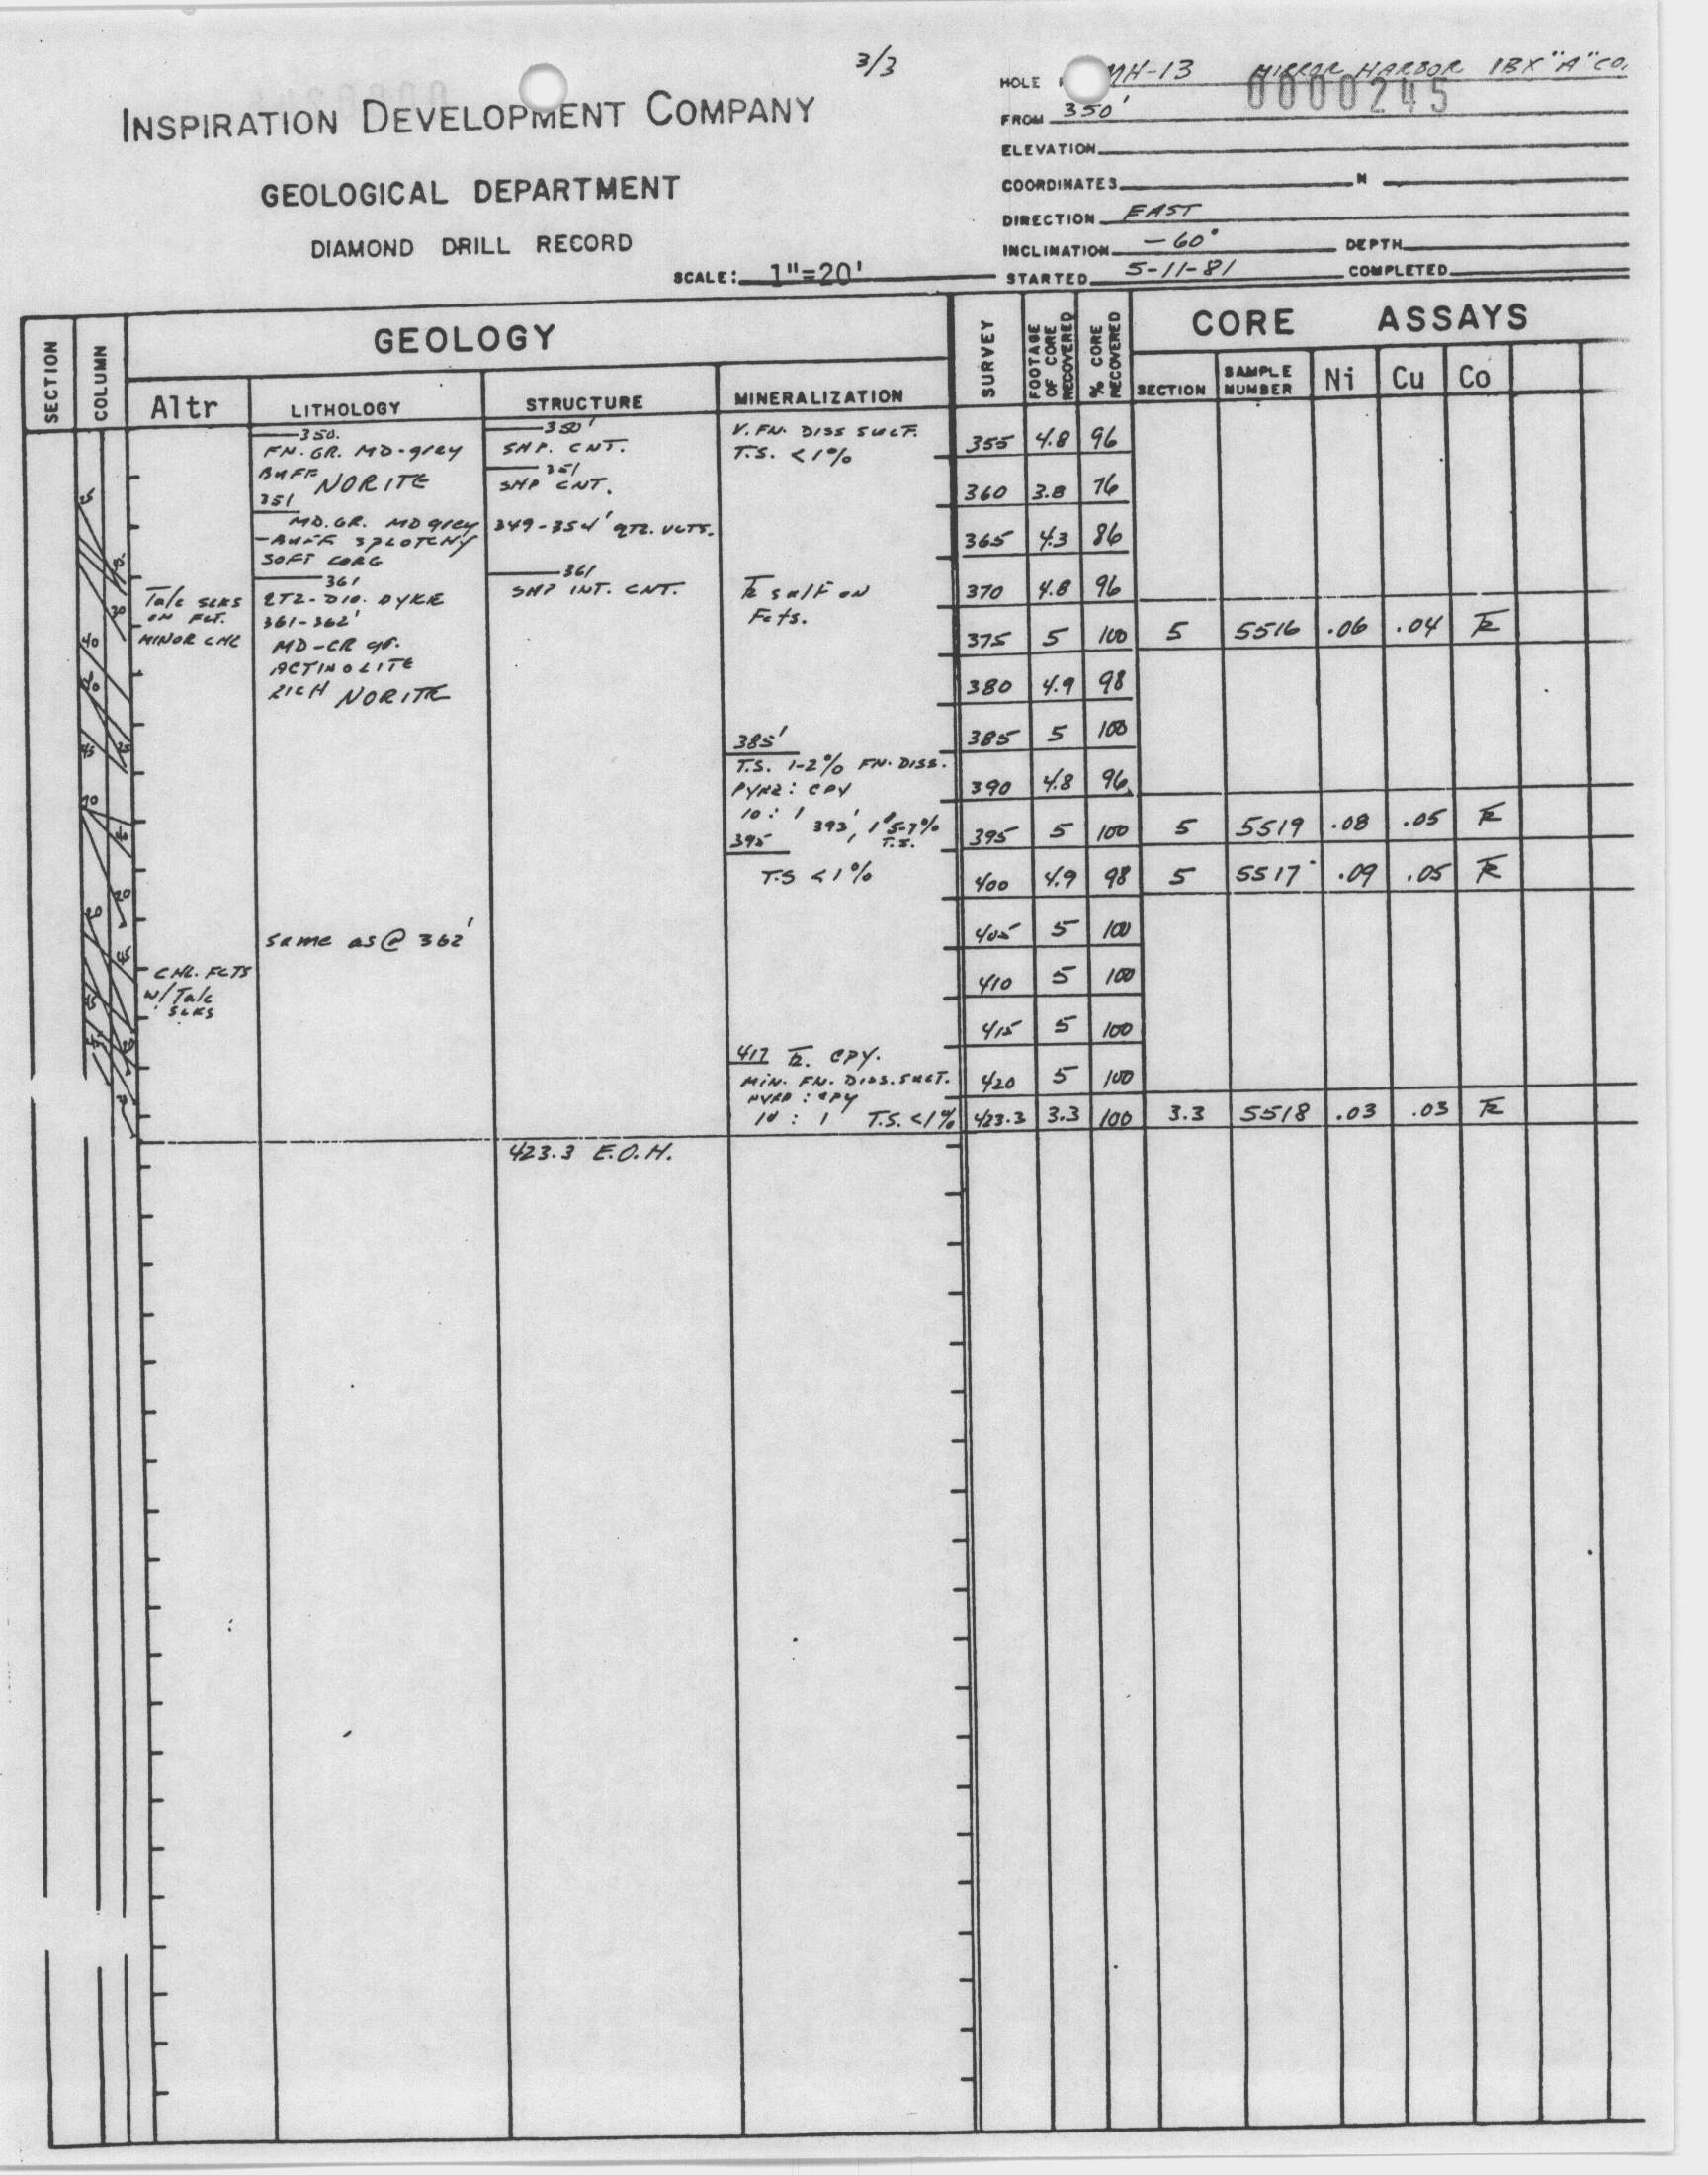 3/3
INSPIRATION DEVELOPMENT COMPANY
GEOLOGICAL DEPARTMENT
DIAMOND DRILL RECORD
SCALE: 1"=20'
HOLE MH-13 MIRROR HARBOR 1BX "A" CO.
0000245
FROM 350'
ELEVATION
COORDINATES N
DIRECTION EAST
INCLINATION -60° DEPTH
STARTED 5-11-81 COMPLETED
SECTION
COLUMN
GEOLOGY
Altr
LITHOLOGY
STRUCTURE
MINERALIZATION
SURVEY
FOOTAGE OF CORE RECOVERED
% CORE RECOVERED
CORE ASSAYS
SECTION
SAMPLE NUMBER
Ni
Cu
Co
Talc SLKS
ON FCT.
MINOR CHL
CHL. FCTS
w/ Talc
SLKS
350.
FN. GR. MD-grey
BUFF NORITE
351
MD. GR. MD grey
-BUFF SPLOTCHY
SOFT CORE
361
QTZ-DIO. DYKE
361-362'
MD-CR gr.
ACTINOLITE
RICH NORITE
same as @ 362'
350'
SHP. CNT.
351
SHP CNT.
349-354' QTZ. VLTS.
361
SHP INT. CNT.
423.3 E.O.H.
V. FN. DISS SULF.
T.S. <1%
TR sulf on
Fcts.
385'
T.S. 1-2% FN. DISS.
PYRR : CPY
10 : 1 393', 1" 5-7%
395 T.S.
T.S <1%
417 TR. CPY.
MIN. FN. DISS. SULF.
PYRR : CPY
10 : 1 T.S. <1%
355 4.8 96
360 3.8 76
365 4.3 86
370 4.8 96
375 5 100 5 5516 .06 .04 TR
380 4.9 98
385 5 100
390 4.8 96
395 5 100 5 5519 .08 .05 TR
400 4.9 98 5 5517 .09 .05 TR
405 5 100
410 5 100
415 5 100
420 5 100
423.3 3.3 100 3.3 5518 .03 .03 TR